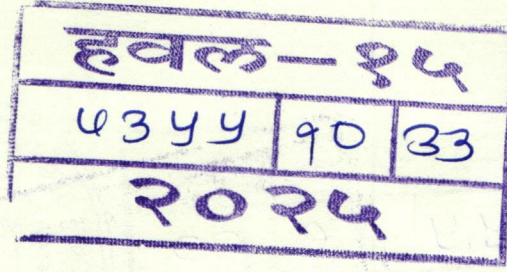 हवल-१५
५३५५ १० ३३
२०२५